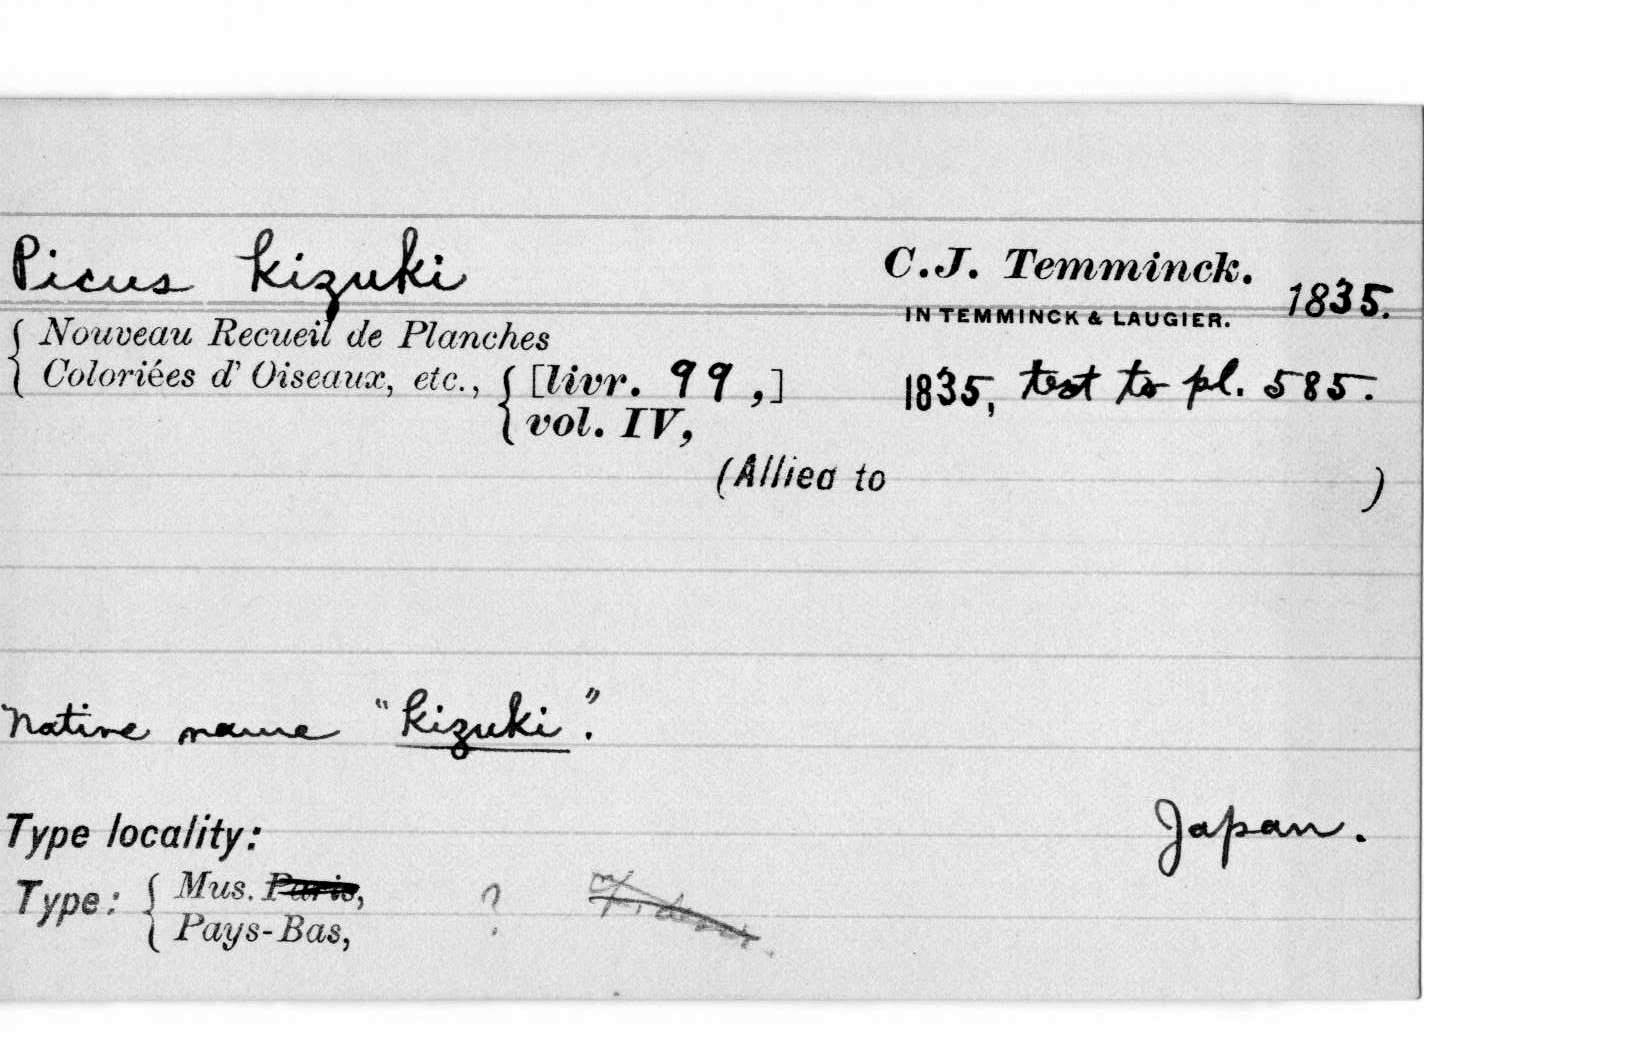 Picus kizuki C.J. Temminck.
IN TEMMINCK & LAUGIER. 1835.
Nouveau Recueil de Planches
Coloriées d' Oiseaux, etc., [livr. 99,] 1835, text to pl. 585.
vol. IV,
(Allied to )
Native name "kizuki".
Type locality: Japan.
Type: Mus. Paris, ?
Pays-Bas,